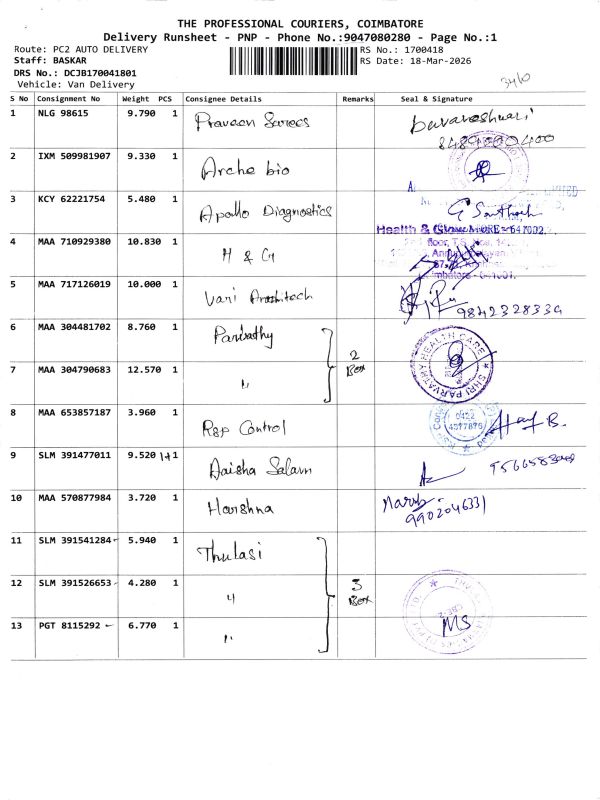 THE PROFESSIONAL COURIERS, COIMBATORE
Delivery Runsheet - PNP - Phone No.:9047080280 - Page No.:1
Route: PC2 AUTO DELIVERY
RS No.: 1700418
Staff: BASKAR
RS Date: 18-Mar-2026
DRS No.: DCJB170041801
Vehicle: Van Delivery
S No Consignment No Weight PCS Consignee Details Remarks Seal & Signature
1 NLG 98615 9.790 1 Praveen Sarees
2 IXM 509981907 9.330 1 Arche bio
3 KCY 62221754 5.480 1 Apollo Diagnostics G Santhosh
Health & G
4 MAA 710929380 10.830 1 H & G
5 MAA 717126019 10.000 1 Vani 9842328334
6 MAA 304481702 8.760 1 Parvathy 2 Box SHRI PARVATHY HEALTH CARE
7 MAA 304790683 12.570 1 "
8 MAA 653857187 3.960 1 Rsp Control 0422 4377876
9 SLM 391477011 9.520 1+1 Daisha Salam
10 MAA 570877984 3.720 1 Harshna 9902046331
11 SLM 391541284 5.940 1 Thulasi
12 SLM 391526653 4.280 1 " 3 Box
13 PGT 8115292 6.770 1 " MS